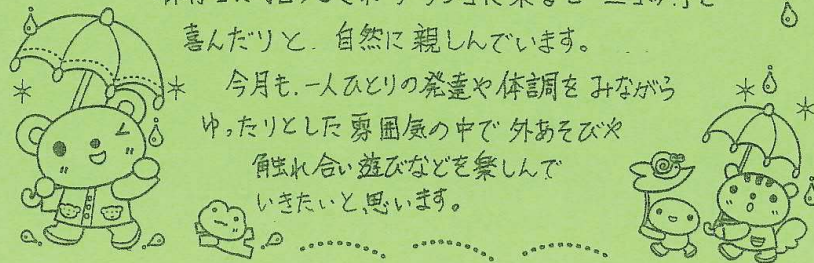 喜んだりと、自然に親しんでいます。
今月も、一人ひとりの発達や体調をみながら
ゆったりとした雰囲気の中で外あそびや
触れ合い遊びなどを楽しんで
いきたいと思います。